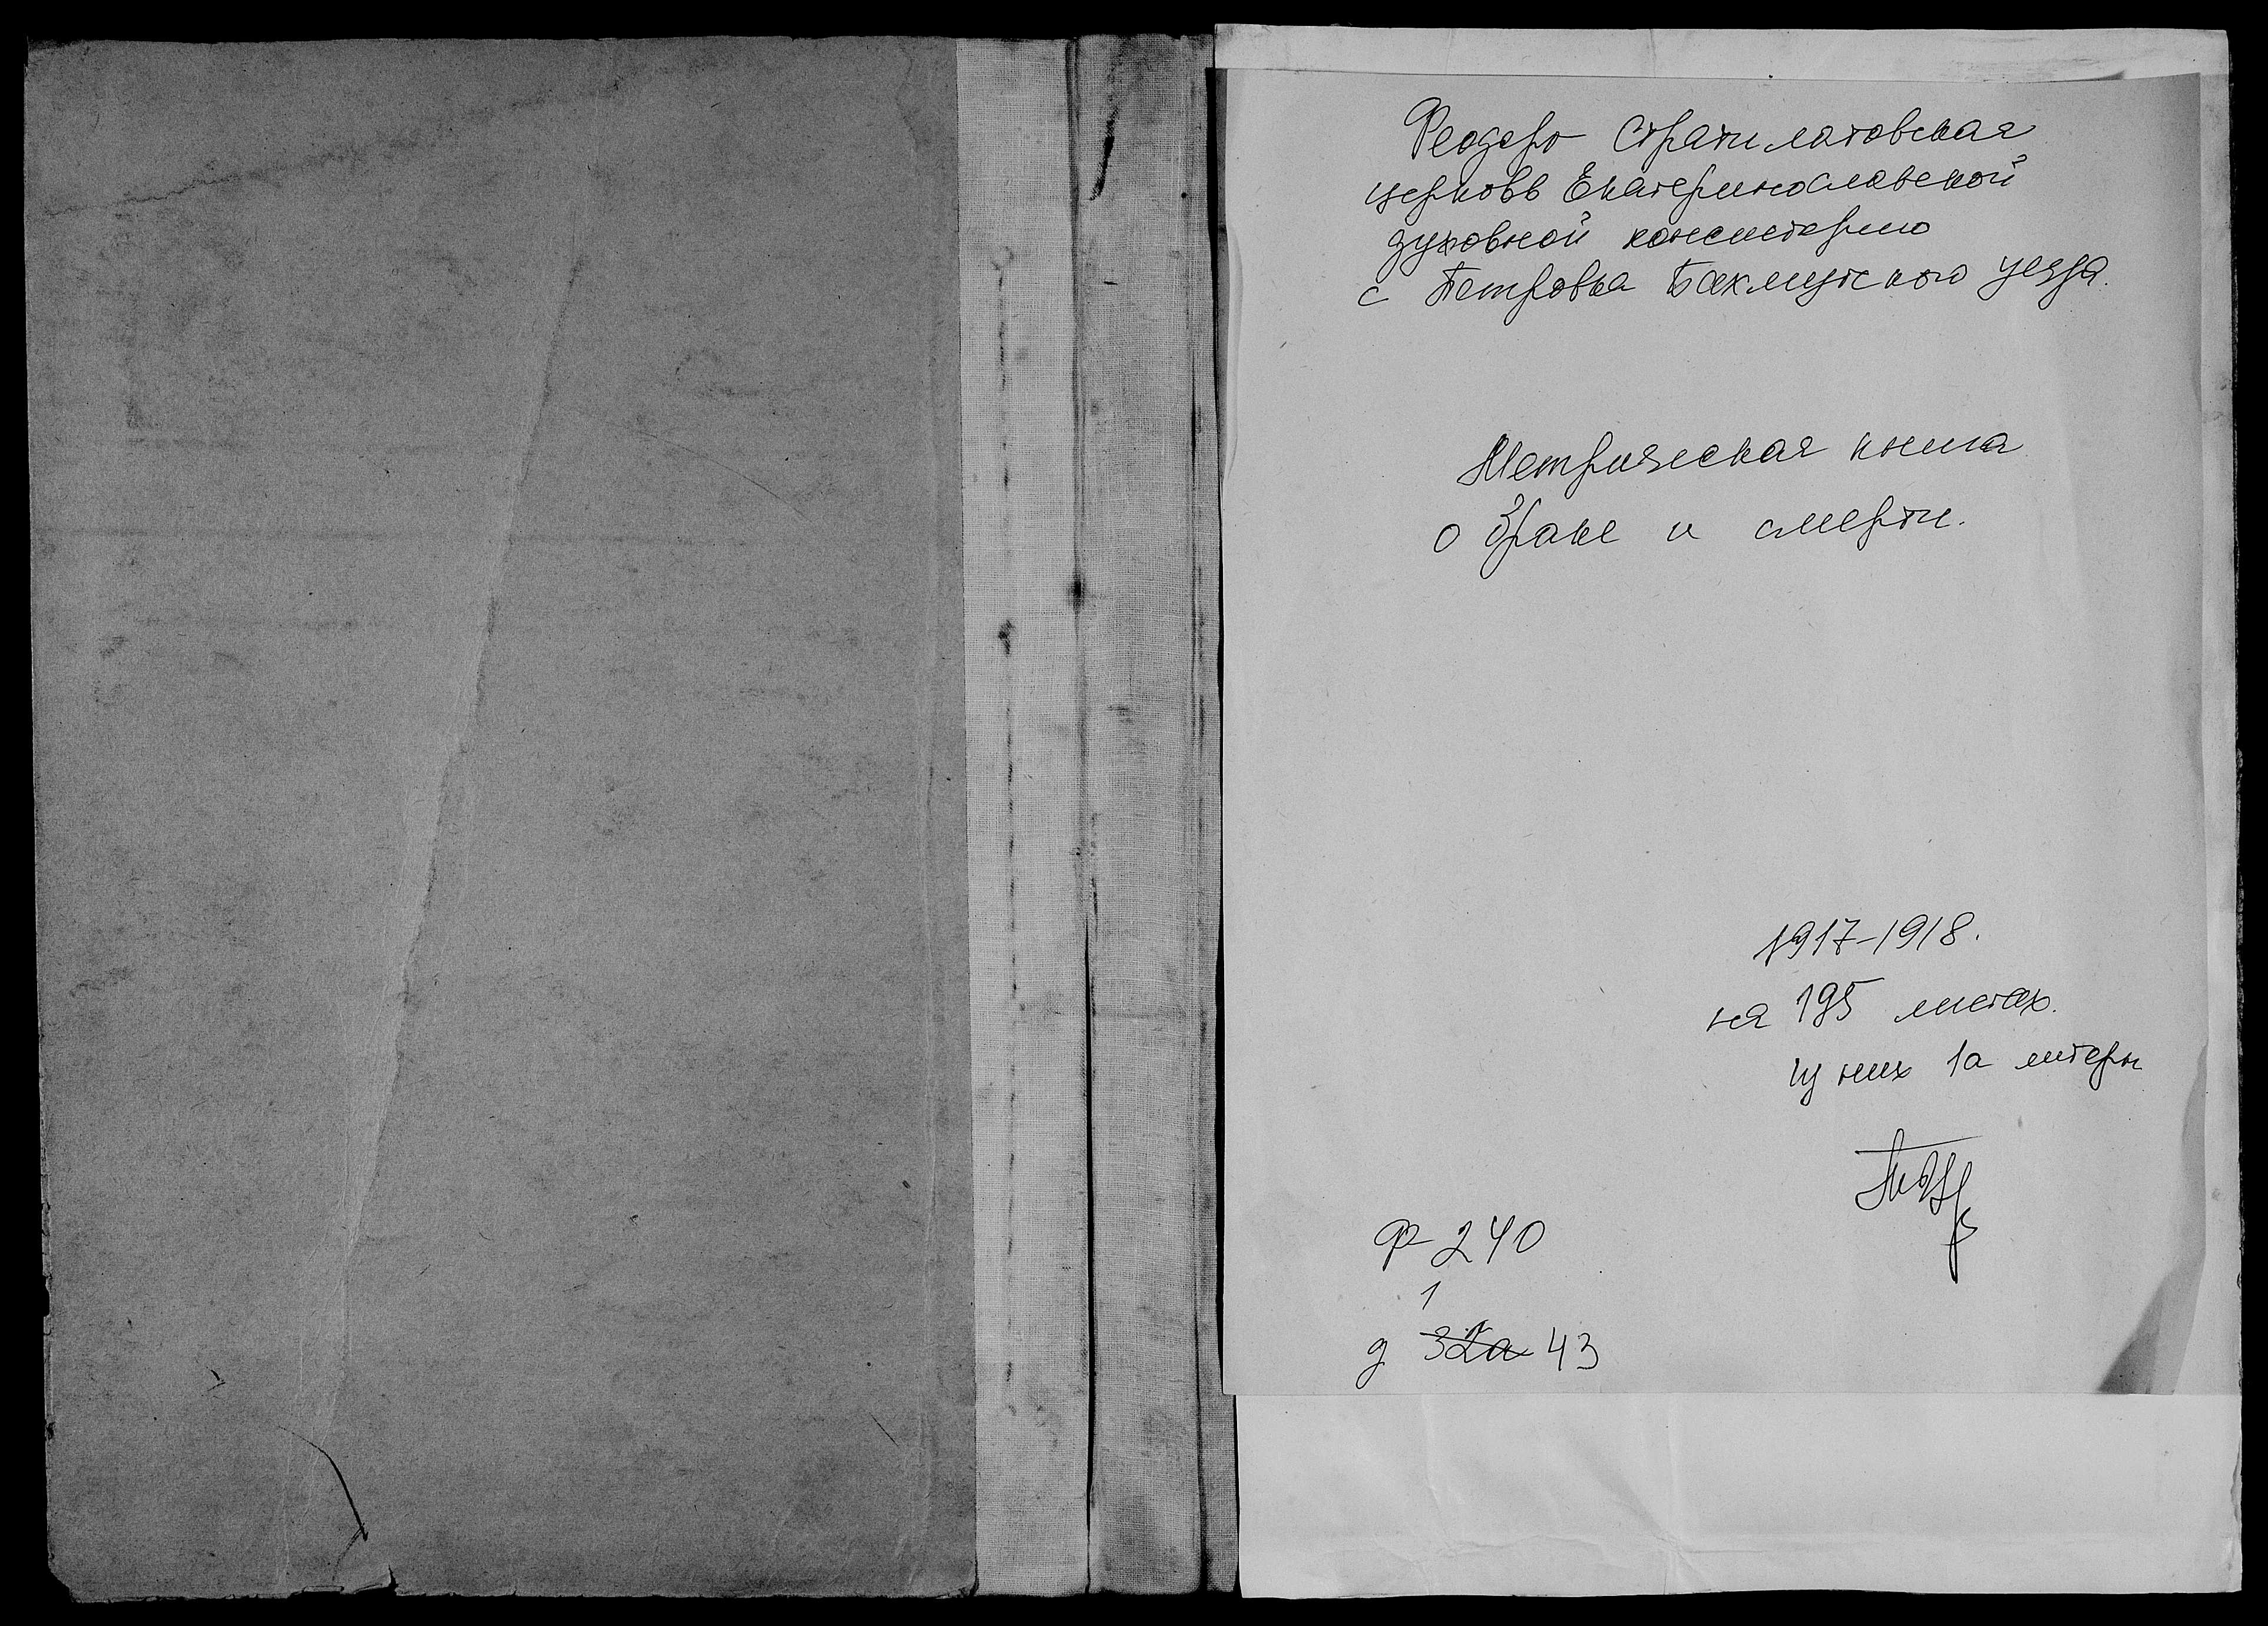 Феодоро Стратилатовская
церковь Екатеринославской
духовной консисторию
с Петровка Бахмутского уезда.
Метрическая книга
о браке и смерти.
1917-1918.
на 195 листах.
из них 1а литеры
Ф 240
1
д 32а 43